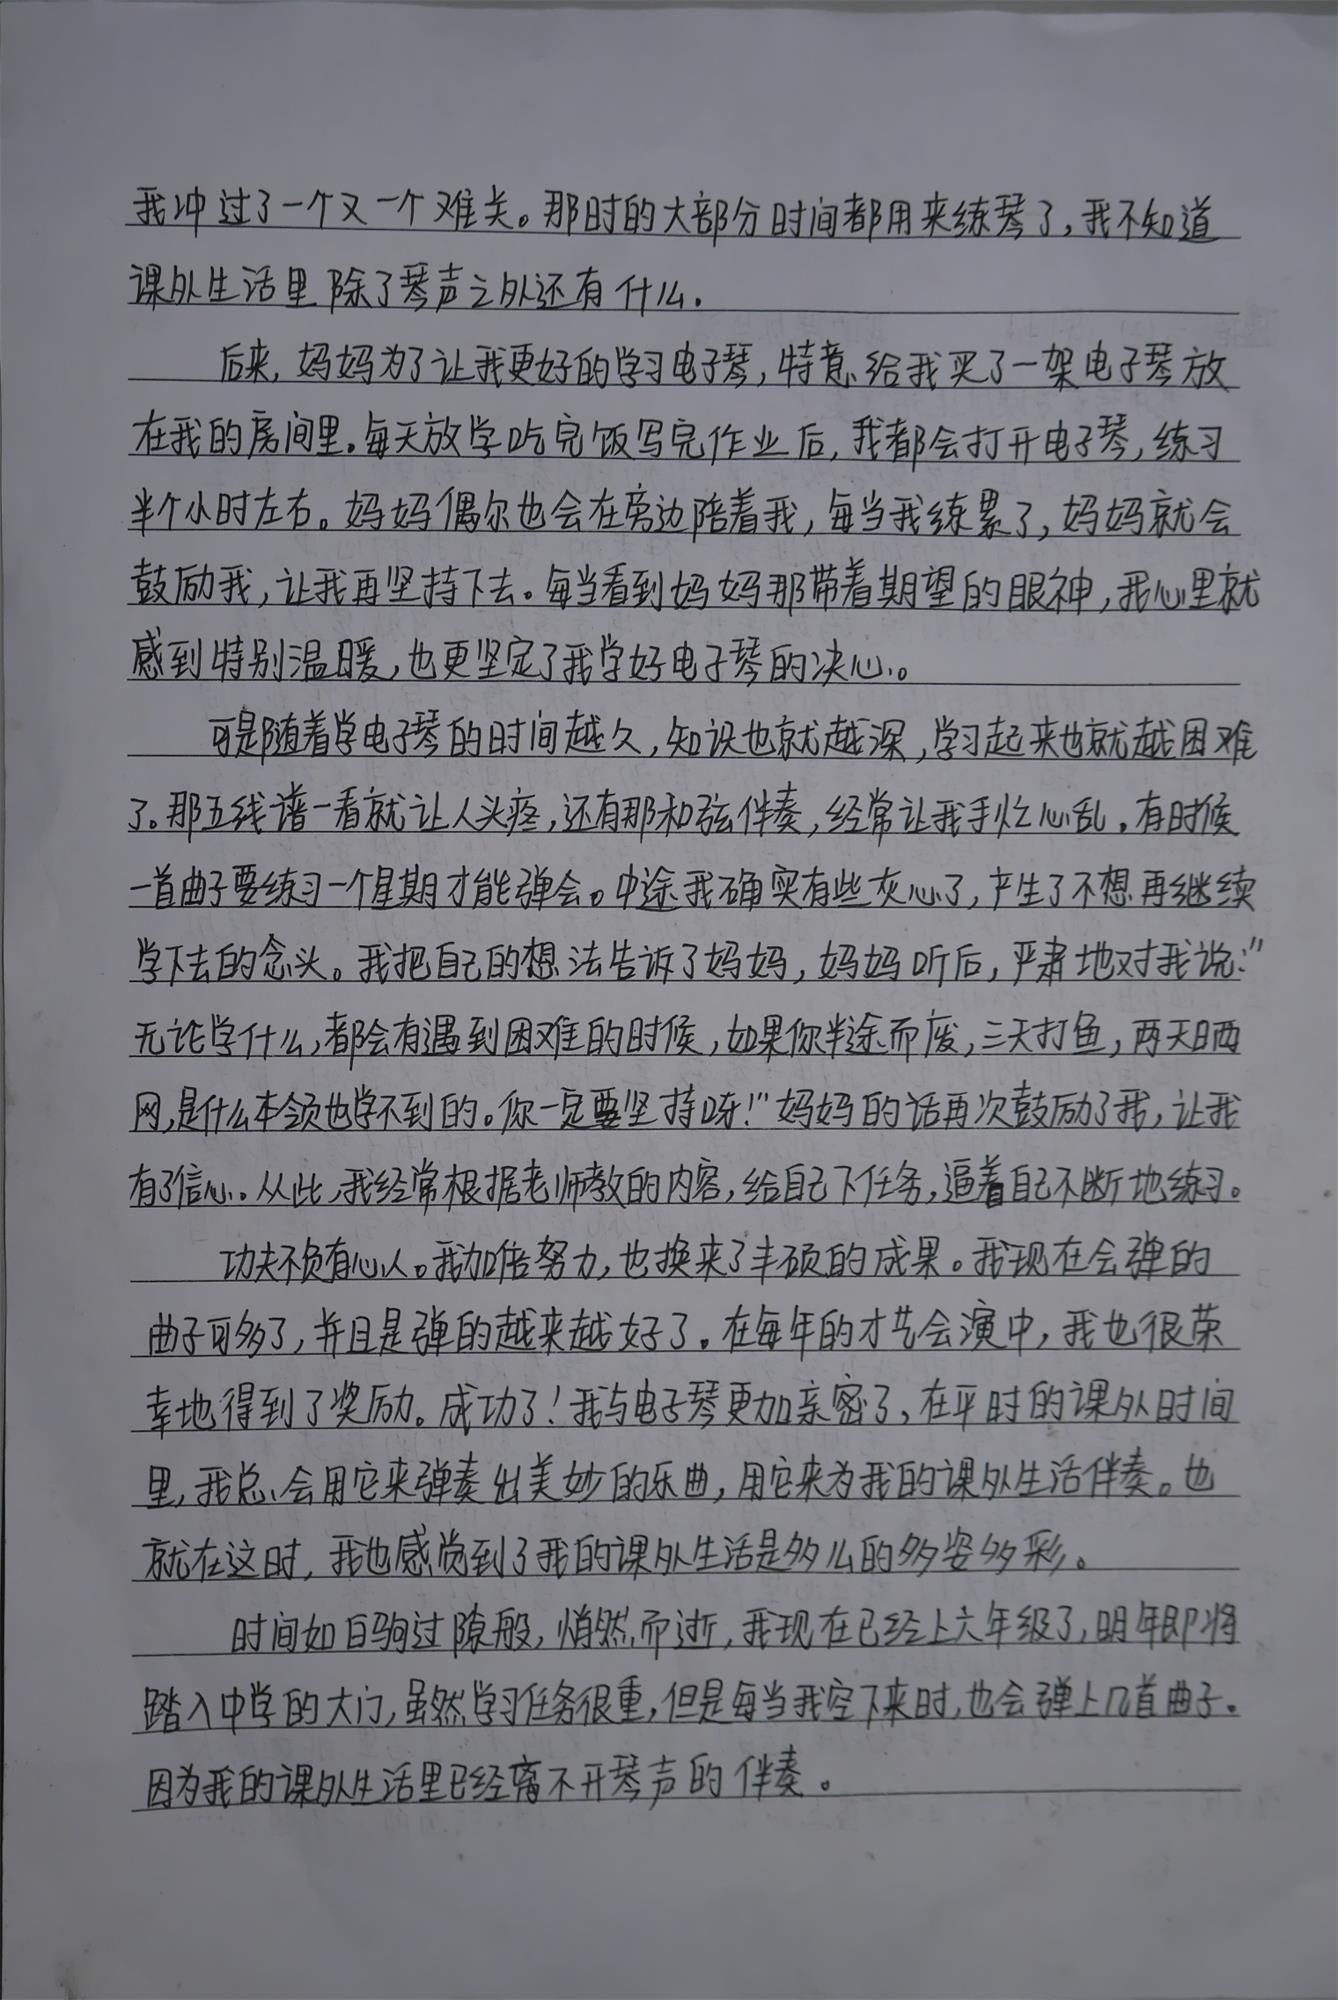 我冲过了一个又一个难关。那时的大部分时间都用来练琴了,我不知道
课外生活里除了琴声之外还有什么.
后来,妈妈为了让我更好的学习电子琴,特意给我买了一架电子琴放
在我的房间里.每天放学吃完饭写完作业后,我都会打开电子琴,练习
半个小时左右。妈妈偶尔也会在旁边陪着我,每当我练累了,妈妈就会
鼓励我,让我再坚持下去。每当看到妈妈那带着期望的眼神,我心里就
感到特别温暖,也更坚定了我学好电子琴的决心。
可是随着学电子琴的时间越久,知识也就越深,学习起来也就越困难
了。那五线谱一看就让人头疼,还有那和弦伴奏,经常让我手忙心乱.有时候
一首曲子要练习一个星期才能弹会。中途我确实有些灰心了,产生了不想再继续
学下去的念头。我把自己的想法告诉了妈妈,妈妈听后,严肃地对我说:"
无论学什么,都会有遇到困难的时候,如果你半途而废,三天打鱼,两天晒
网,是什么本领也学不到的。你一定要坚持呀!"妈妈的话再次鼓励了我,让我
有了信心。从此,我经常根据老师教的内容,给自己下任务,逼着自己不断地练习。
功夫不负有心人。我加倍努力,也换来了丰硕的成果。我现在会弹的
曲子可多了,并且是弹的越来越好了。在每年的才艺会演中,我也很荣
幸地得到了奖励。成功了!我与电子琴更加亲密了,在平时的课外时间
里,我总会用它来弹奏出美妙的乐曲,用它来为我的课外生活伴奏。也
就在这时,我也感觉到了我的课外生活是多么的多姿多彩。
时间如白驹过隙般,悄然而逝,我现在已经上六年级了,明年即将
踏入中学的大门,虽然学习任务很重,但是每当我空下来时,也会弹上几首曲子.
因为我的课外生活里已经离不开琴声的伴奏。